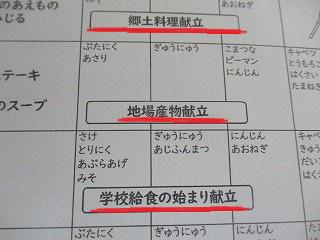 のあえもの
みじる
あおねぎ
郷土料理献立
ぶたにく
あさり
ぎゅうにゅう
こまつな
ピーマン
にんじん
キャベツ
とうもろこ
はくさい
たまねぎ
ステーキ
のスープ
地場産物献立
さけ
とりにく
あぶらあげ
みそ
ぎゅうにゅう
あじふんまつ
にんじん
あおねぎ
キャベ
きゅう
はくさ
学校給食の始まり献立
ぶたにく
ぎゅうにゅう
にんじん
たま